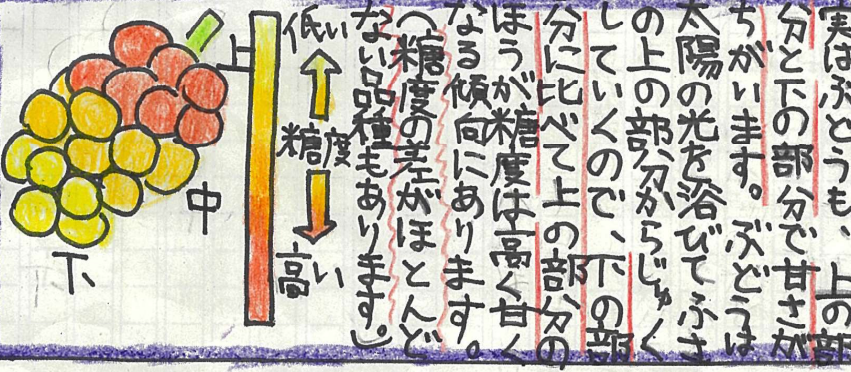 実はぶどうも、上の部
分と下の部分で甘さが
ちがいます。ぶどうは
太陽の光を浴びてふさ
の上の部分からじゅく
していくので、下の部
分に比べて上の部分の
ほうが糖度は高く甘く
なる傾向にあります。
(糖度の差がほとんど
ない品種もあります。)
低い
糖度
高い
上
中
下